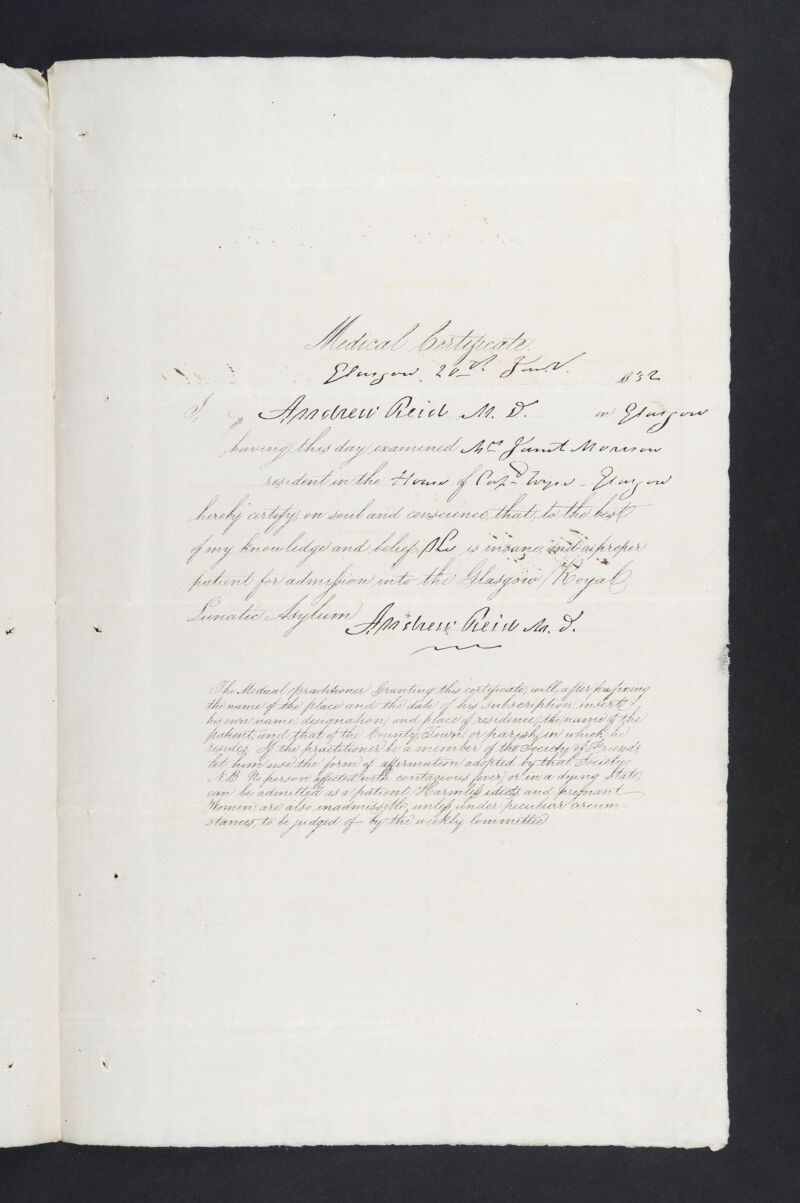 Medical Certificate.
Glasgow. 20th 1832
I, Andrew Reid M. D. in Glasgow
having this day examined Mrs Janet Morison
resident in the House of Capn Wyse - Glasgow
hereby certify, on soul and conscience, that, to the best
of my knowledge and belief, She is insane, and a proper
patient for admission into the Glasgow Royal
Lunatic Asylum
Andrew Reid M. D.
The Medical practitioner Granting this certificate, will, after prefixing
the name of the place and the date of his subscription, insert
his own name, designation, and place of residence, the name of the
patient, and that of the County, Town, or parish, in which he
resides. If the practitioner be a member of the Society of Friends
let him use the form of affirmation adopted by that Society.
N.B. No person affected with contagious fever, or in a dying State,
can be admitted as a patient. Harmless idiots and pregnant
Women are also inadmissible, unless under peculiar circum-
stances, to be judged of by the weekly Committee